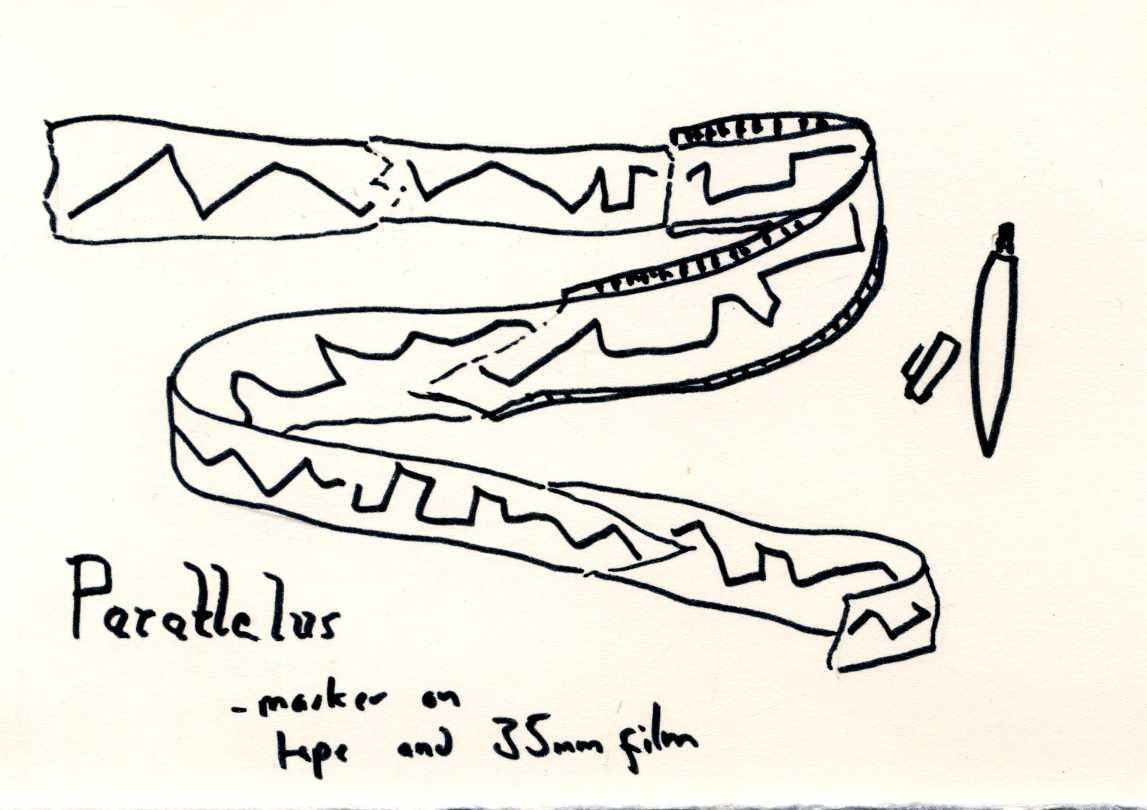 Parallelus
- marker on
tape and 35mm film